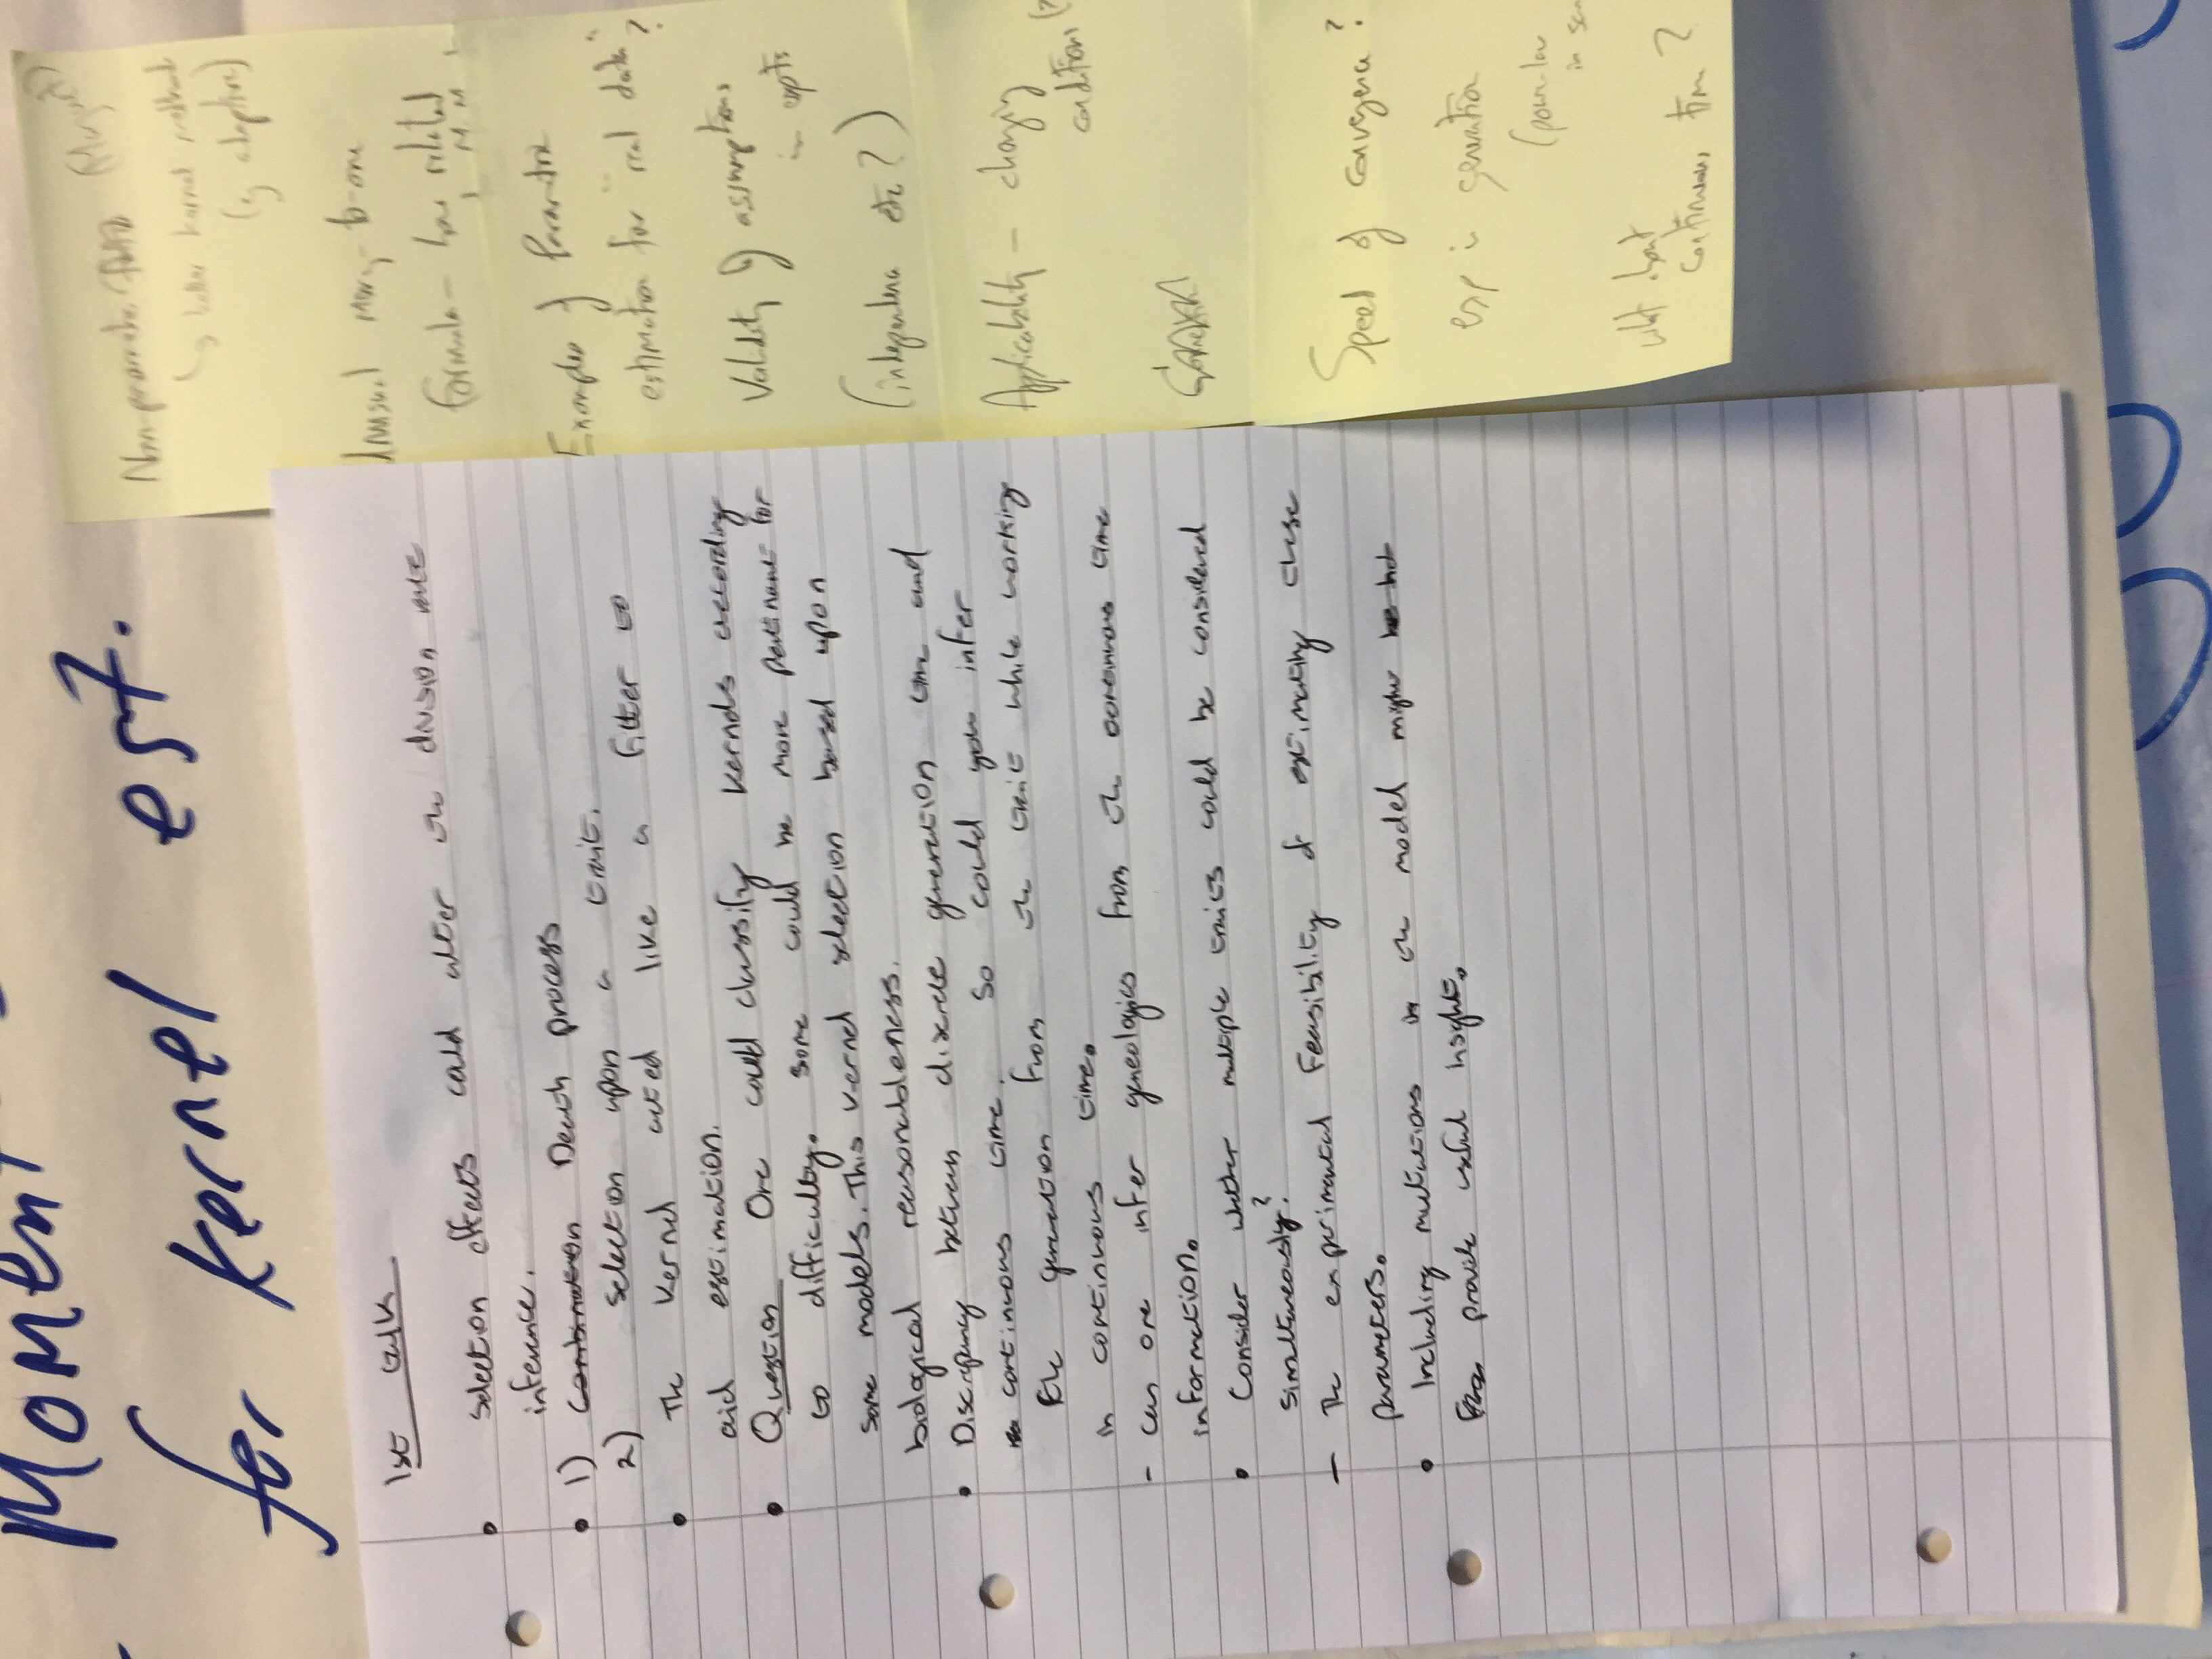 Moment
for kernel est.
1st talk
• selection effects could alter the division rate
inference.
• 1) Combination Death process
2) selection upon a trait.
• The kernel acted like a filter to
aid estimation.
• Question One could classify kernels according
to difficulty. Some could be more pertinent for
some models. This kernel selection based upon
biological reasonableness.
• Discrepancy between discrete generation time and
continuous time. So could you infer
the generation from the trait while working
in continuous time.
- can one infer geneologies from the continuous time
information.
• Consider whether multiple traits could be considered
simultaneously?
- The experimental feasibility of estimating these
parameters.
• Including mutations in the model might
provide useful insight.
Non-parametric
better kernel methods
(eg adaptive)
Unusual Many-to-one
formula — how related
Examples of Parametric
estimation for "real data"?
Validity of assumptions
in expts
(independence etc?)
Applicability — changing
conditions
Speed of convergence?
exp in generation
(popular
in
what about
continuous time?